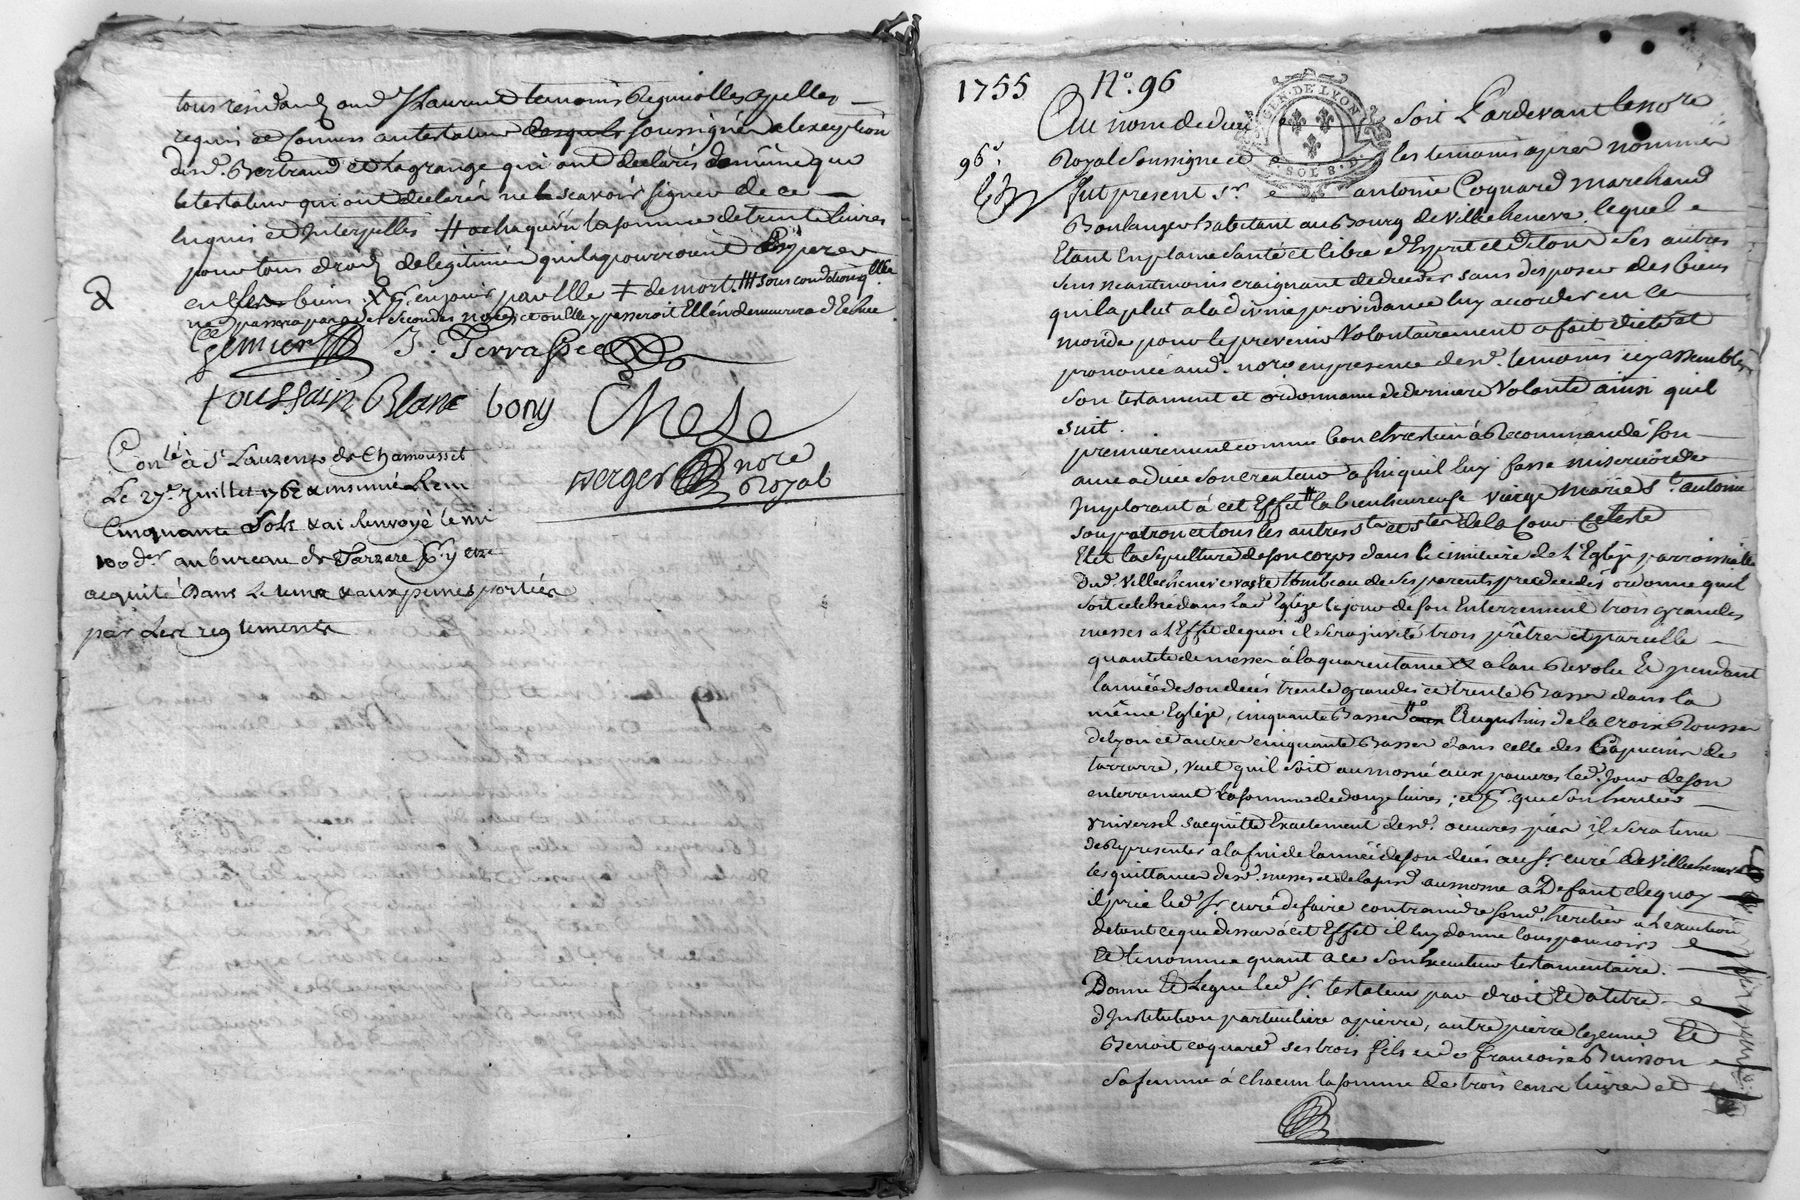 tous residants aud. St Laurent temoins requis et appelles
requis de connus au testateur desquels soussignés a lexeption
desd. Bertrand et Lagrange qui ont declarés de même que
le testateur qui ont declarés ne le scavoir signer de ce
enquis et Interpelles # a chaqu'un la somme de trente livres
pour tous droits de legitimes qu'ils pourroient esperer
en ses biens par elle ‡ de mort ## sous condition quelle
ne passera pas a des secondes noces et ou elle y passeroit Elle en demeurera déchue
Gemier J. Terrasse
toussain Blanc bony Chese
verger nore Royal
Conlé à St Laurens de Chamousset
Le 27e Juillet 1762 & insinué Reçu
Cinquante Sols & ai Renvoyé le mi
100 der au bureau de Tarare pr y etre
acquité Dans Le tems & aux peines portées
par Les reglements
1755 No. 96
GEN. DE LYON
SOL 8 D
Au nom de dieu soit Pardevant le nore
96e
Royal soussigné et les temoins apres nommés
fut present sr antoine Coquard marchand
Boulanger habitant au Bourg de villecheneve lequel
Etant En plaine santé et libre d'Esprit et de tous ses autres
sens neantmoins craignant de deceder sans disposer des biens
quil a plut a la divine providance luy accorder en ce
monde pour le prevenir Volontairement a fait dicté et
prononcé aud. nore en presence desd. temoins icy assemblés
son testament et ordonnance de derniere Volonté ainsi quil
suit.
premierement comme bon chrestien à Recommandé son
ame a dieu son createur afin quil luy fasse misericorde
Implorant à cet Effet la bienheureuse vierge Marie St antoine
son patron et tous les autres sts et stes de la Cour Celeste
Elit la sepulture de son corps dans le cimitiere de L'Eglise parroissialle
dud. villecheneve tombeau de ses parents predecedés ordonne quil
soit celebré dans lad. Eglize le jour de son Enterrement trois grandes
messes a l'Effet de quoi il sera invité trois prêtres et pareille
quantité de messes à la quarantaine & a lan Revolu Et pendant
lannée de son deces trente grandes et trente Basses dans la
même Eglize, cinquante Basses aux Augustins de la croix Rousse
de lyon et autres cinquante Basses dans celle des Capucins de
tarrarre, veut qu'il soit aumosné aux pauvres led. Jour de son
enterrement la somme de douze livres; et pr. que son heritier
universel s'acquitte Exactement desd. oeuvres pies il sera tenu
de Representer a la fin de lannée de son deces au sr. curé de villecheneve
les quittances desd. messes et de lad. aumosne a Defaut de quoy
il prie led. sr. curé de faire contraindre sond. heritier a L'execution
de tout ce que dessus à cet Effet il luy donne tous pouvoirs
et le nomme quant a ce son Executeur testamentaire.
Donne et Legue led. sr. testateur par droit et a titre
d'Institution particuliere a pierre, autre pierre le jeune et
Benoit coquard ses trois fils et de francoise Buisson
sa femme à chacun la somme de trois cents livres et